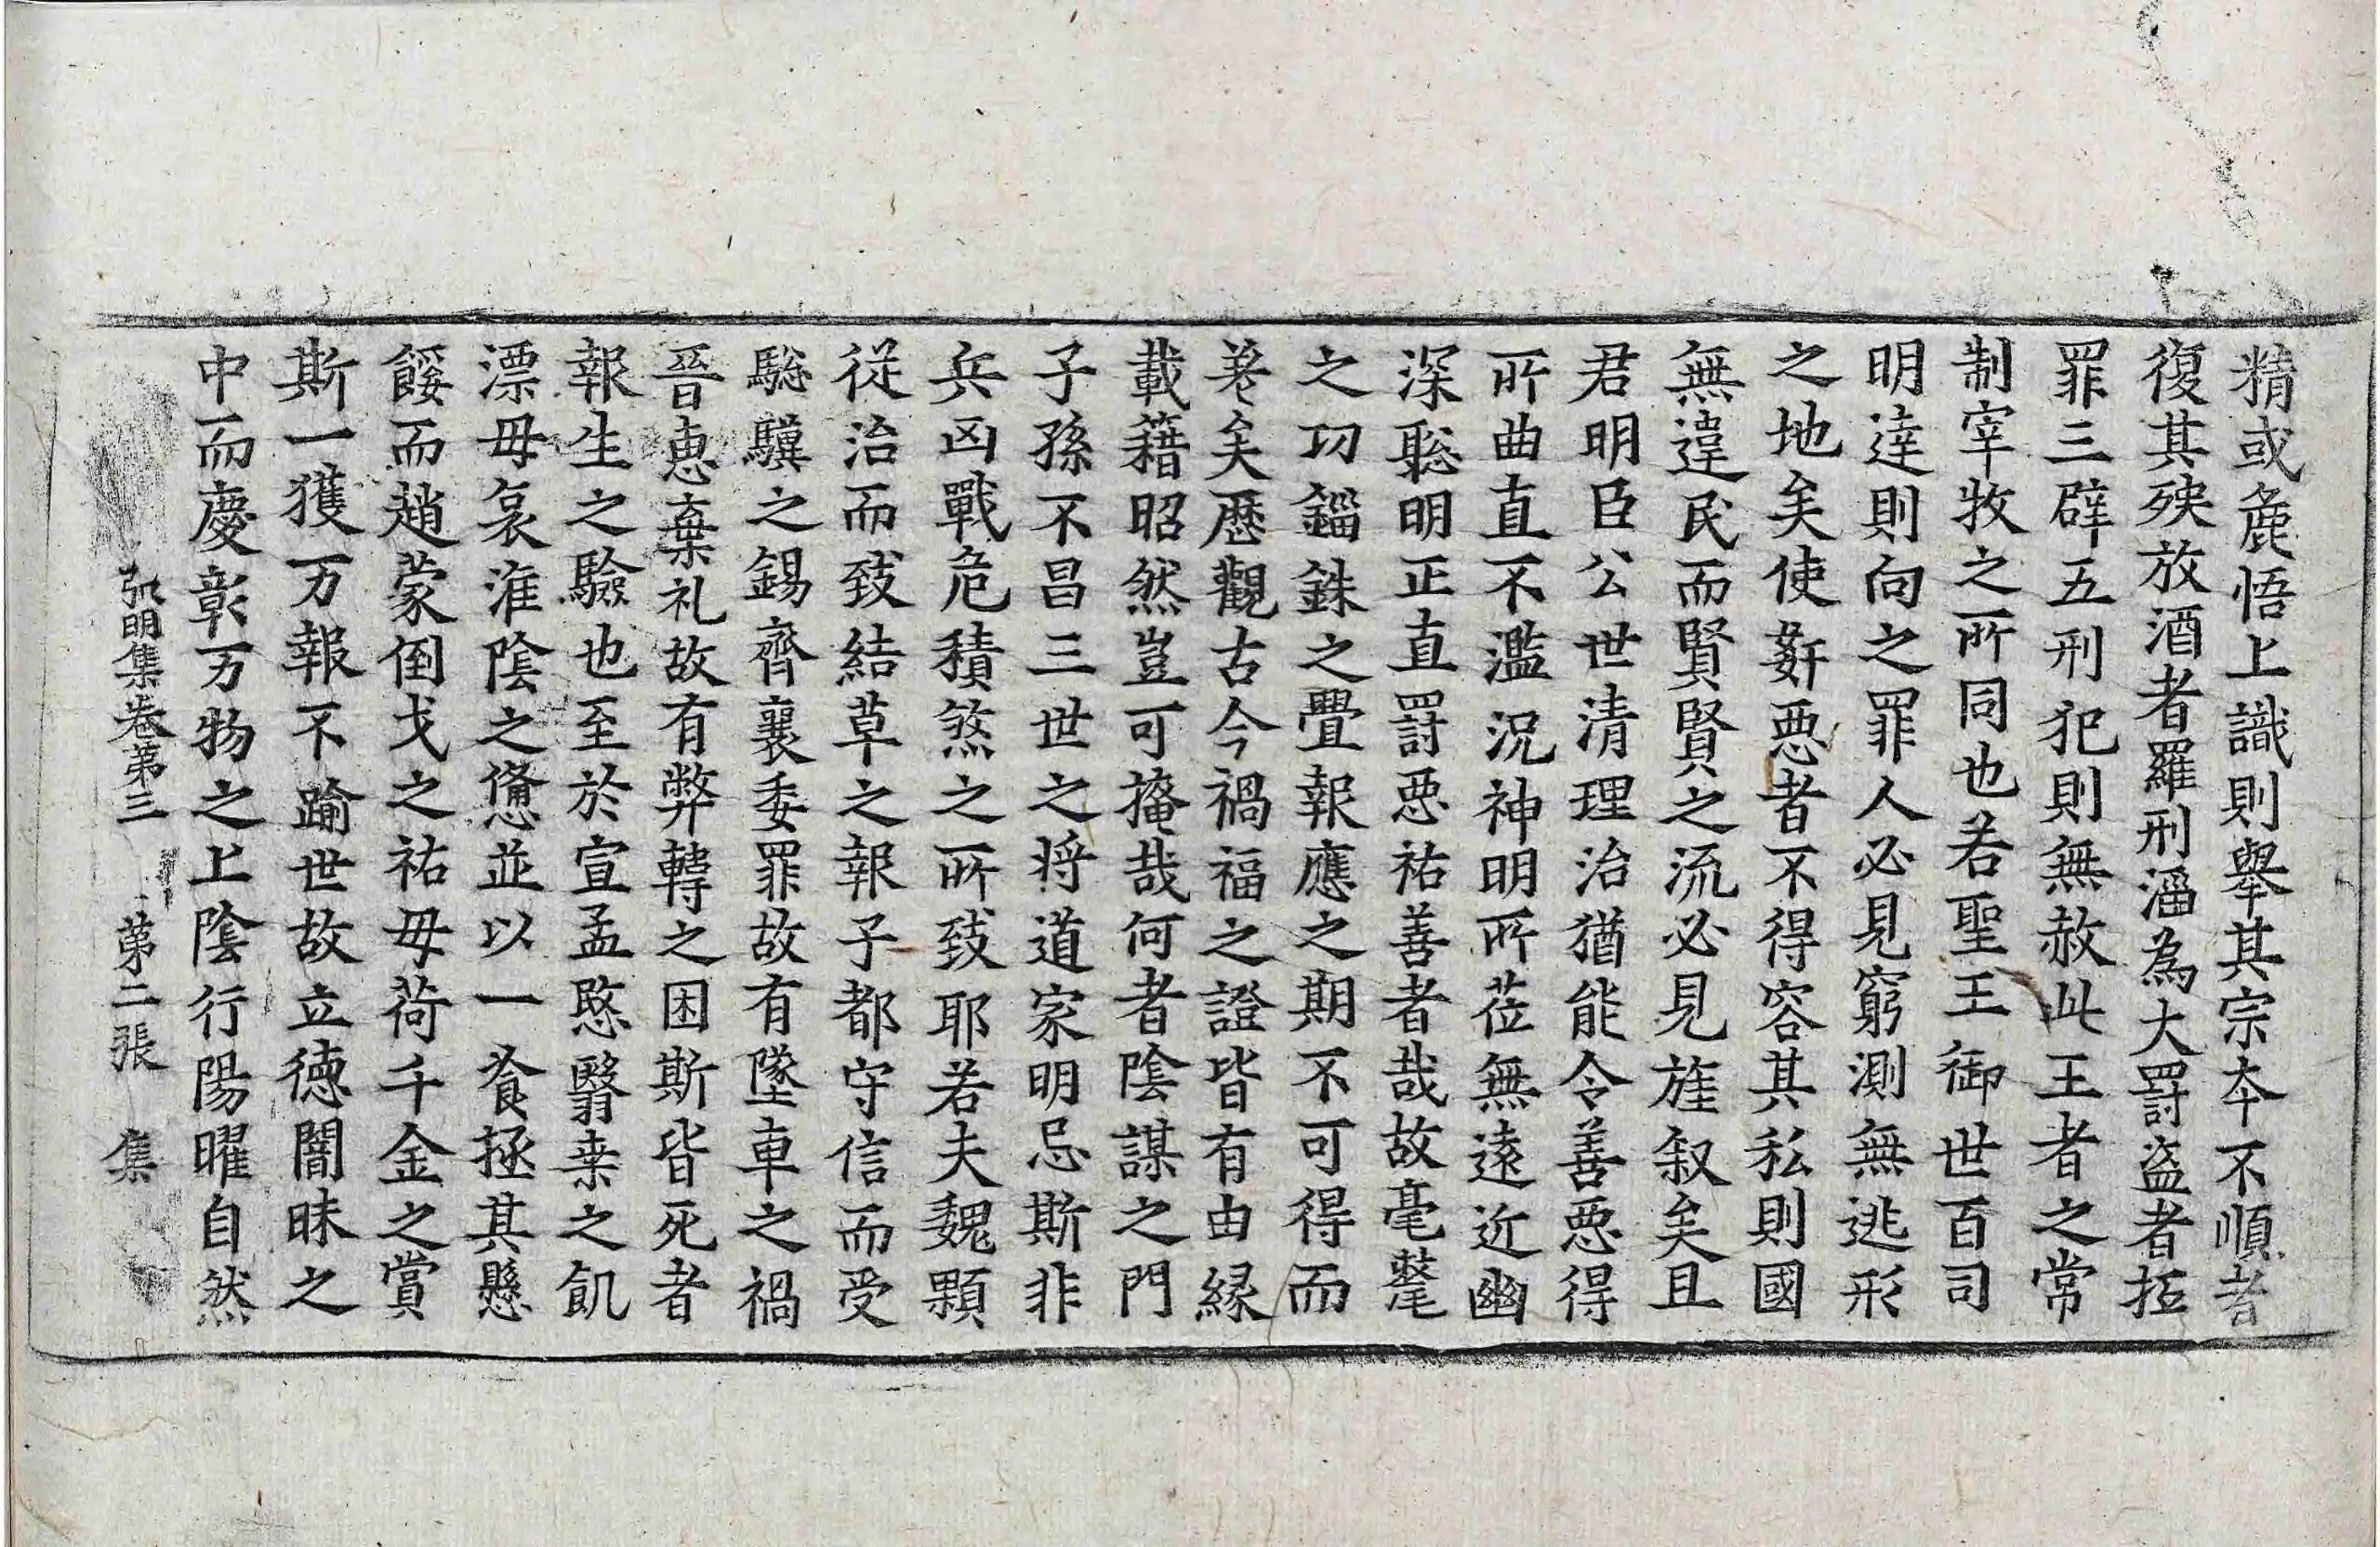 精或麁悟上識則舉其宗本不順者
復其殃放酒者羅刑淫為大罸盗者抵
罪三辟五刑犯則無赦此王者之常
制宰牧之所同也若聖王御世百司
明達則向之罪人必見窮測無逃形
之地矣使姧惡者不得容其私則國
無違民而賢賢之流必見旌叙矣且
君明臣公世清理治猶能令善惡得
所曲直不濫況神明所莅無遠近幽
深聡明正直罸惡祐善者哉故毫氂
之功錙銖之舋報應之期不可得而
差矣歷觀古今禍福之證皆有由縁
載籍昭然豈可掩哉何者陰謀之門
子孫不昌三世之將道家明忌斯非
兵凶戰危積煞之所致耶若夫魏顆
從治而致結草之報子都守信而受
驄驥之錫齊襄委罪故有墜車之禍
晉惠棄礼故有弊轉之困斯皆死者
報生之驗也至於宣孟愍翳桒之飢
漂毋哀淮陰之憊並以一飡拯其懸
餒而趙蒙倒戈之祐毋荷千金之賞
斯一獲万報不踰世故立徳闇昧之
中而慶彰万物之上陰行陽曜自然
弘明集卷第三 第二張 集